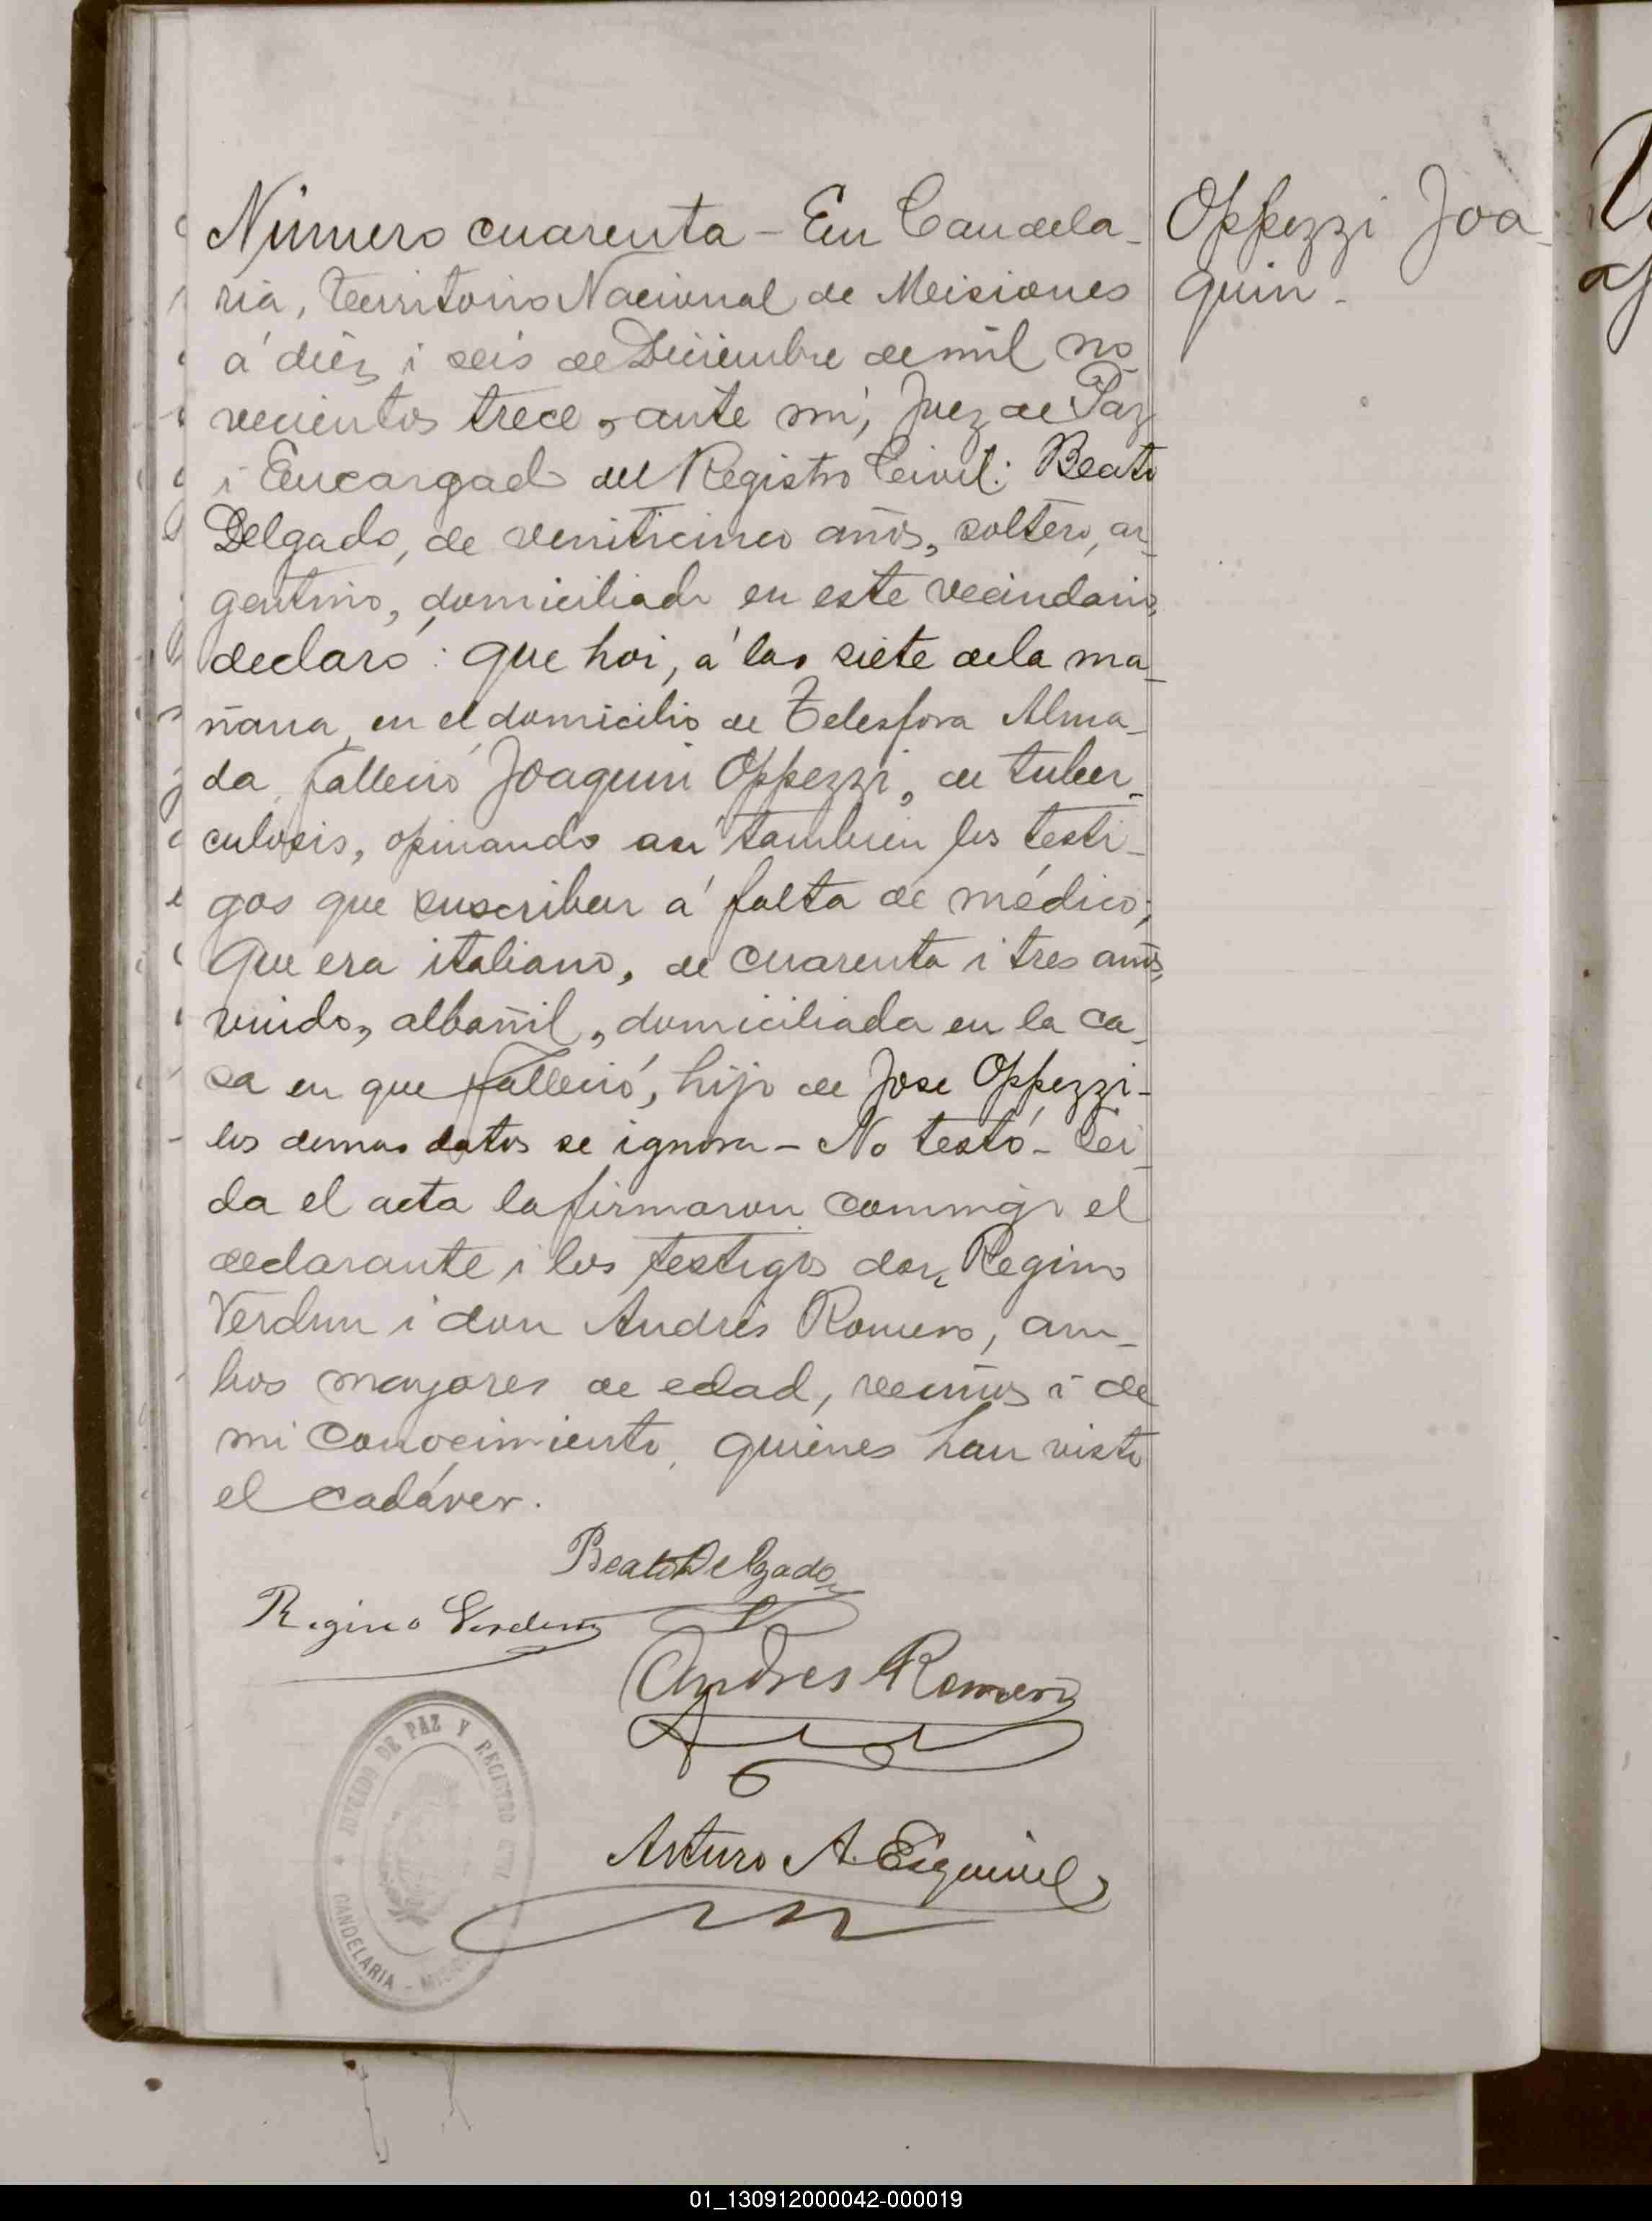 Número cuarenta - En Candela-
ria, territorio Nacional de Misiones
á diéz i seis de Diciembre de mil no
vecientos trece, ante mí, Juez de Paz
i Encargado del Registro Civil: Beato
Delgado, de veniticinco años, soltero, ar-
gentino, domiciliado en este vecindario,
declaró: que hoi, á las siete de la ma-
ñana, en el domicilio de Telesfora Alma-
da, falleció Joaquin Oppezzi, de tuber-
culosis, opinando asi tambien los testi-
gos que suscriben á falta de médico;
Que era italiano, de cuarenta i tres años,
viudo, albañil, domiciliada en la ca-
sa en que falleció, hijo de Jose Oppezzi-
los demas datos se ignora - No testó - Lei-
da el acta la firmaron conmigo el
declarante i los testigos don Regino
Verdun i don Andrés Romero, am-
bos mayores de edad, vecinos i de
mi conocimiento, quienes han visto
el cadáver.
Oppezzi Joa-
quin -
Beato Delgado
Regino Verdun
Andres Romero
Arturo A. Esquivel
JUZGADO DE PAZ Y REGISTRO CIVIL
CANDELARIA -
01_130912000042-000019